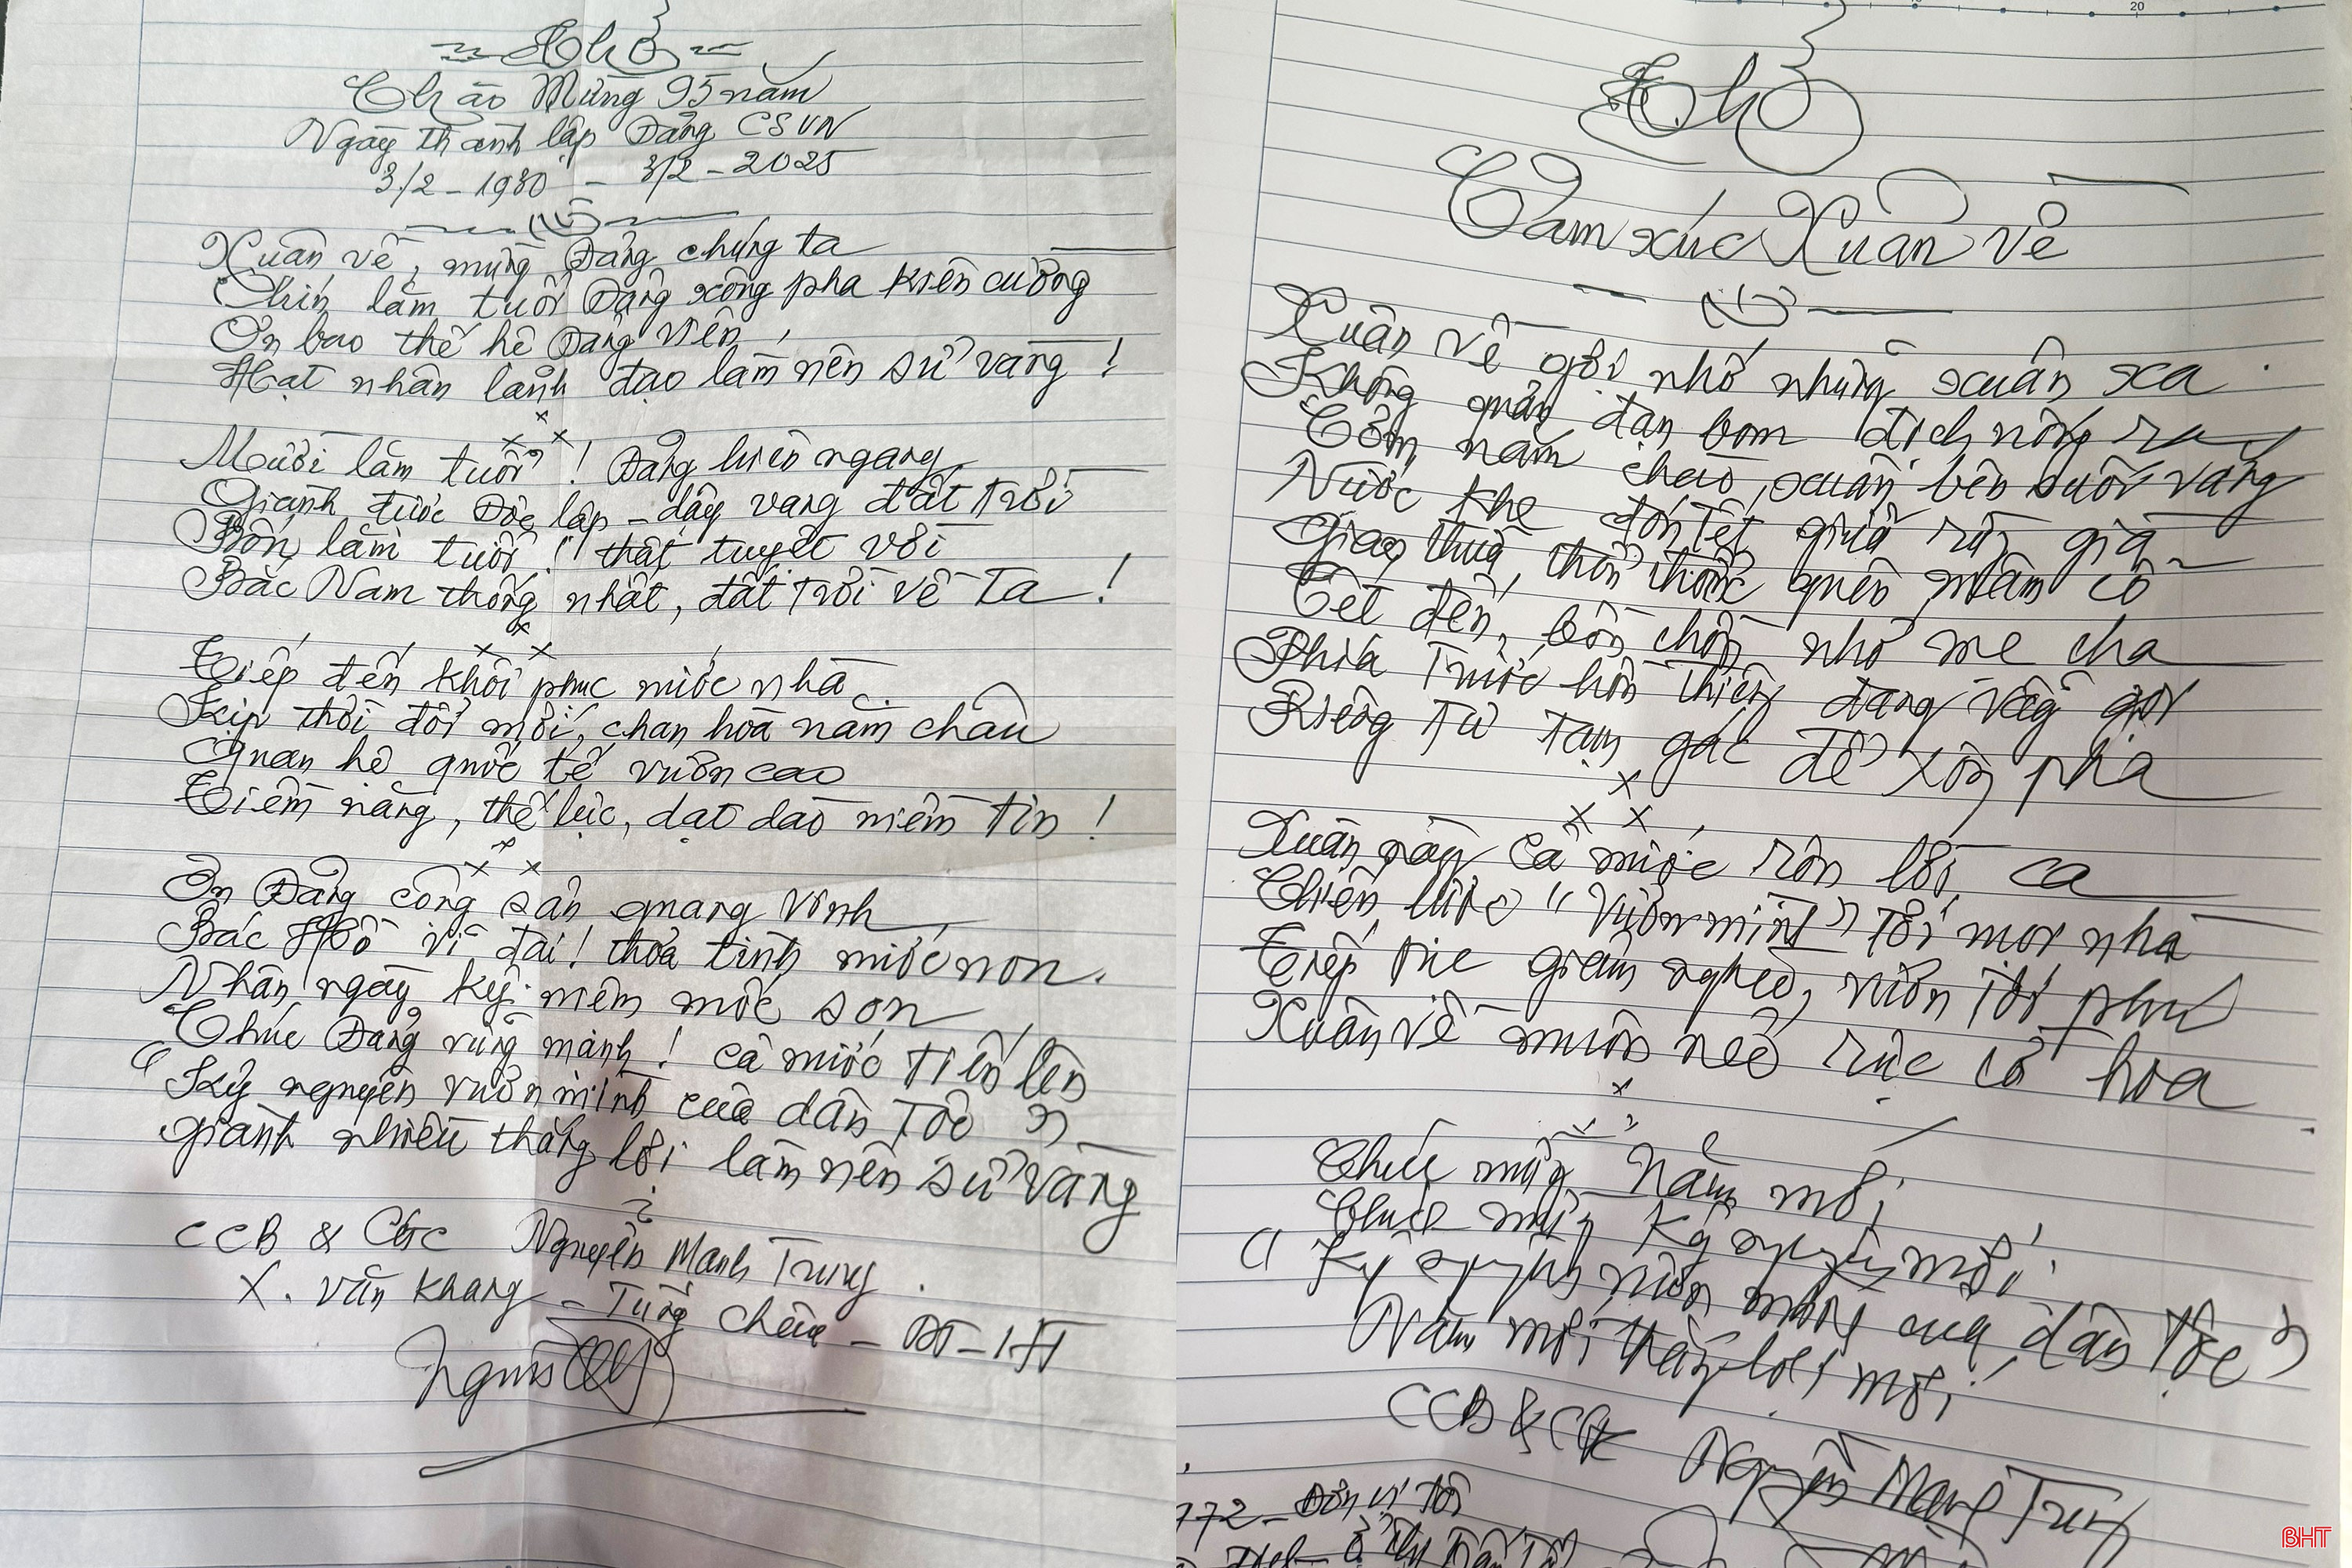 Thơ
Chào Mừng 95 năm
Ngày thành lập Đảng CSVN
3/2-1930 - 3/2-2025
Xuân về, mừng Đảng chúng ta
Chín lăm tuổi Đảng xông pha kiên cường
Ơn bao thế hệ Đảng viên
Hạt nhân lãnh đạo làm nên sử vàng!
Mười lăm tuổi! Đảng hiên ngang
Giành được Độc lập - dậy vang đất trời
Bốn lăm tuổi! thật tuyệt vời
Bắc Nam thống nhất, đất trời về Ta!
Tiếp đến khôi phục nước nhà
Kịp thời đổi mới, chan hòa năm châu
Quan hệ quốc tế vươn cao
Tiềm năng, thế lực, dạt dào niềm tin!
Ơn Đảng cộng sản quang vinh
Bác Hồ vĩ đại! thỏa tình nước non.
Nhân ngày kỷ niệm mốc son
Chúc Đảng vững mạnh! cả nước tiến lên
"Kỷ nguyên vươn mình của dân Tộc"
giành nhiều thắng lợi làm nên sử vàng
CCB & Nguyễn Mạnh Trung.
X. Văn Khang - Tùng Châu - ĐT-HT
Thơ
Cảm xúc Xuân về
Xuân về gợi nhớ những xuân xa
Không quản đạn bom địch nống ra
Cơm nắm chào xuân bên suối vắng
Nước khe đón Tết giữa rừng già
Giao thừa, thổn thức quên mâm cỗ
Tết đến, bồn chồn nhớ mẹ cha
Phía Trước hồn thiêng đang vẫy gọi
Riêng Tư Tạm gác để xông pha
Xuân này cả nước rộn lời ca
Chiến lược "Vươn mình" Tới mọi nhà
Tiếp tục giảm nghèo, vươn Tới phú
Xuân về muôn nẻo rực cờ hoa
Chúc mừng Năm mới
Chúc mừng Kỷ nguyên mới!
"Kỷ nguyên vươn mình của dân Tộc"
Năm mới thắng lợi mới!
CCB & Nguyễn Mạnh Trung
BHT